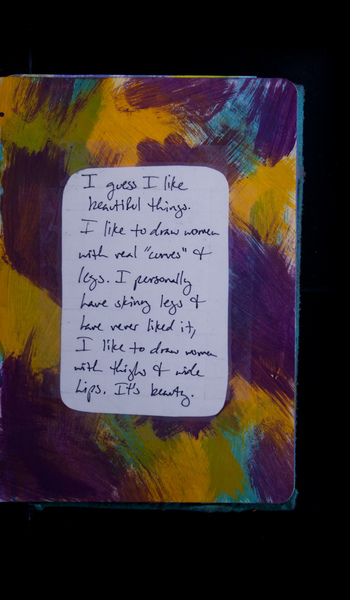 I guess I like
beautiful things.
I like to draw women
with real "curves" &
legs. I personally
have skinny legs &
have never liked it,
I like to draw women
with thighs & wide
hips. It's beauty.